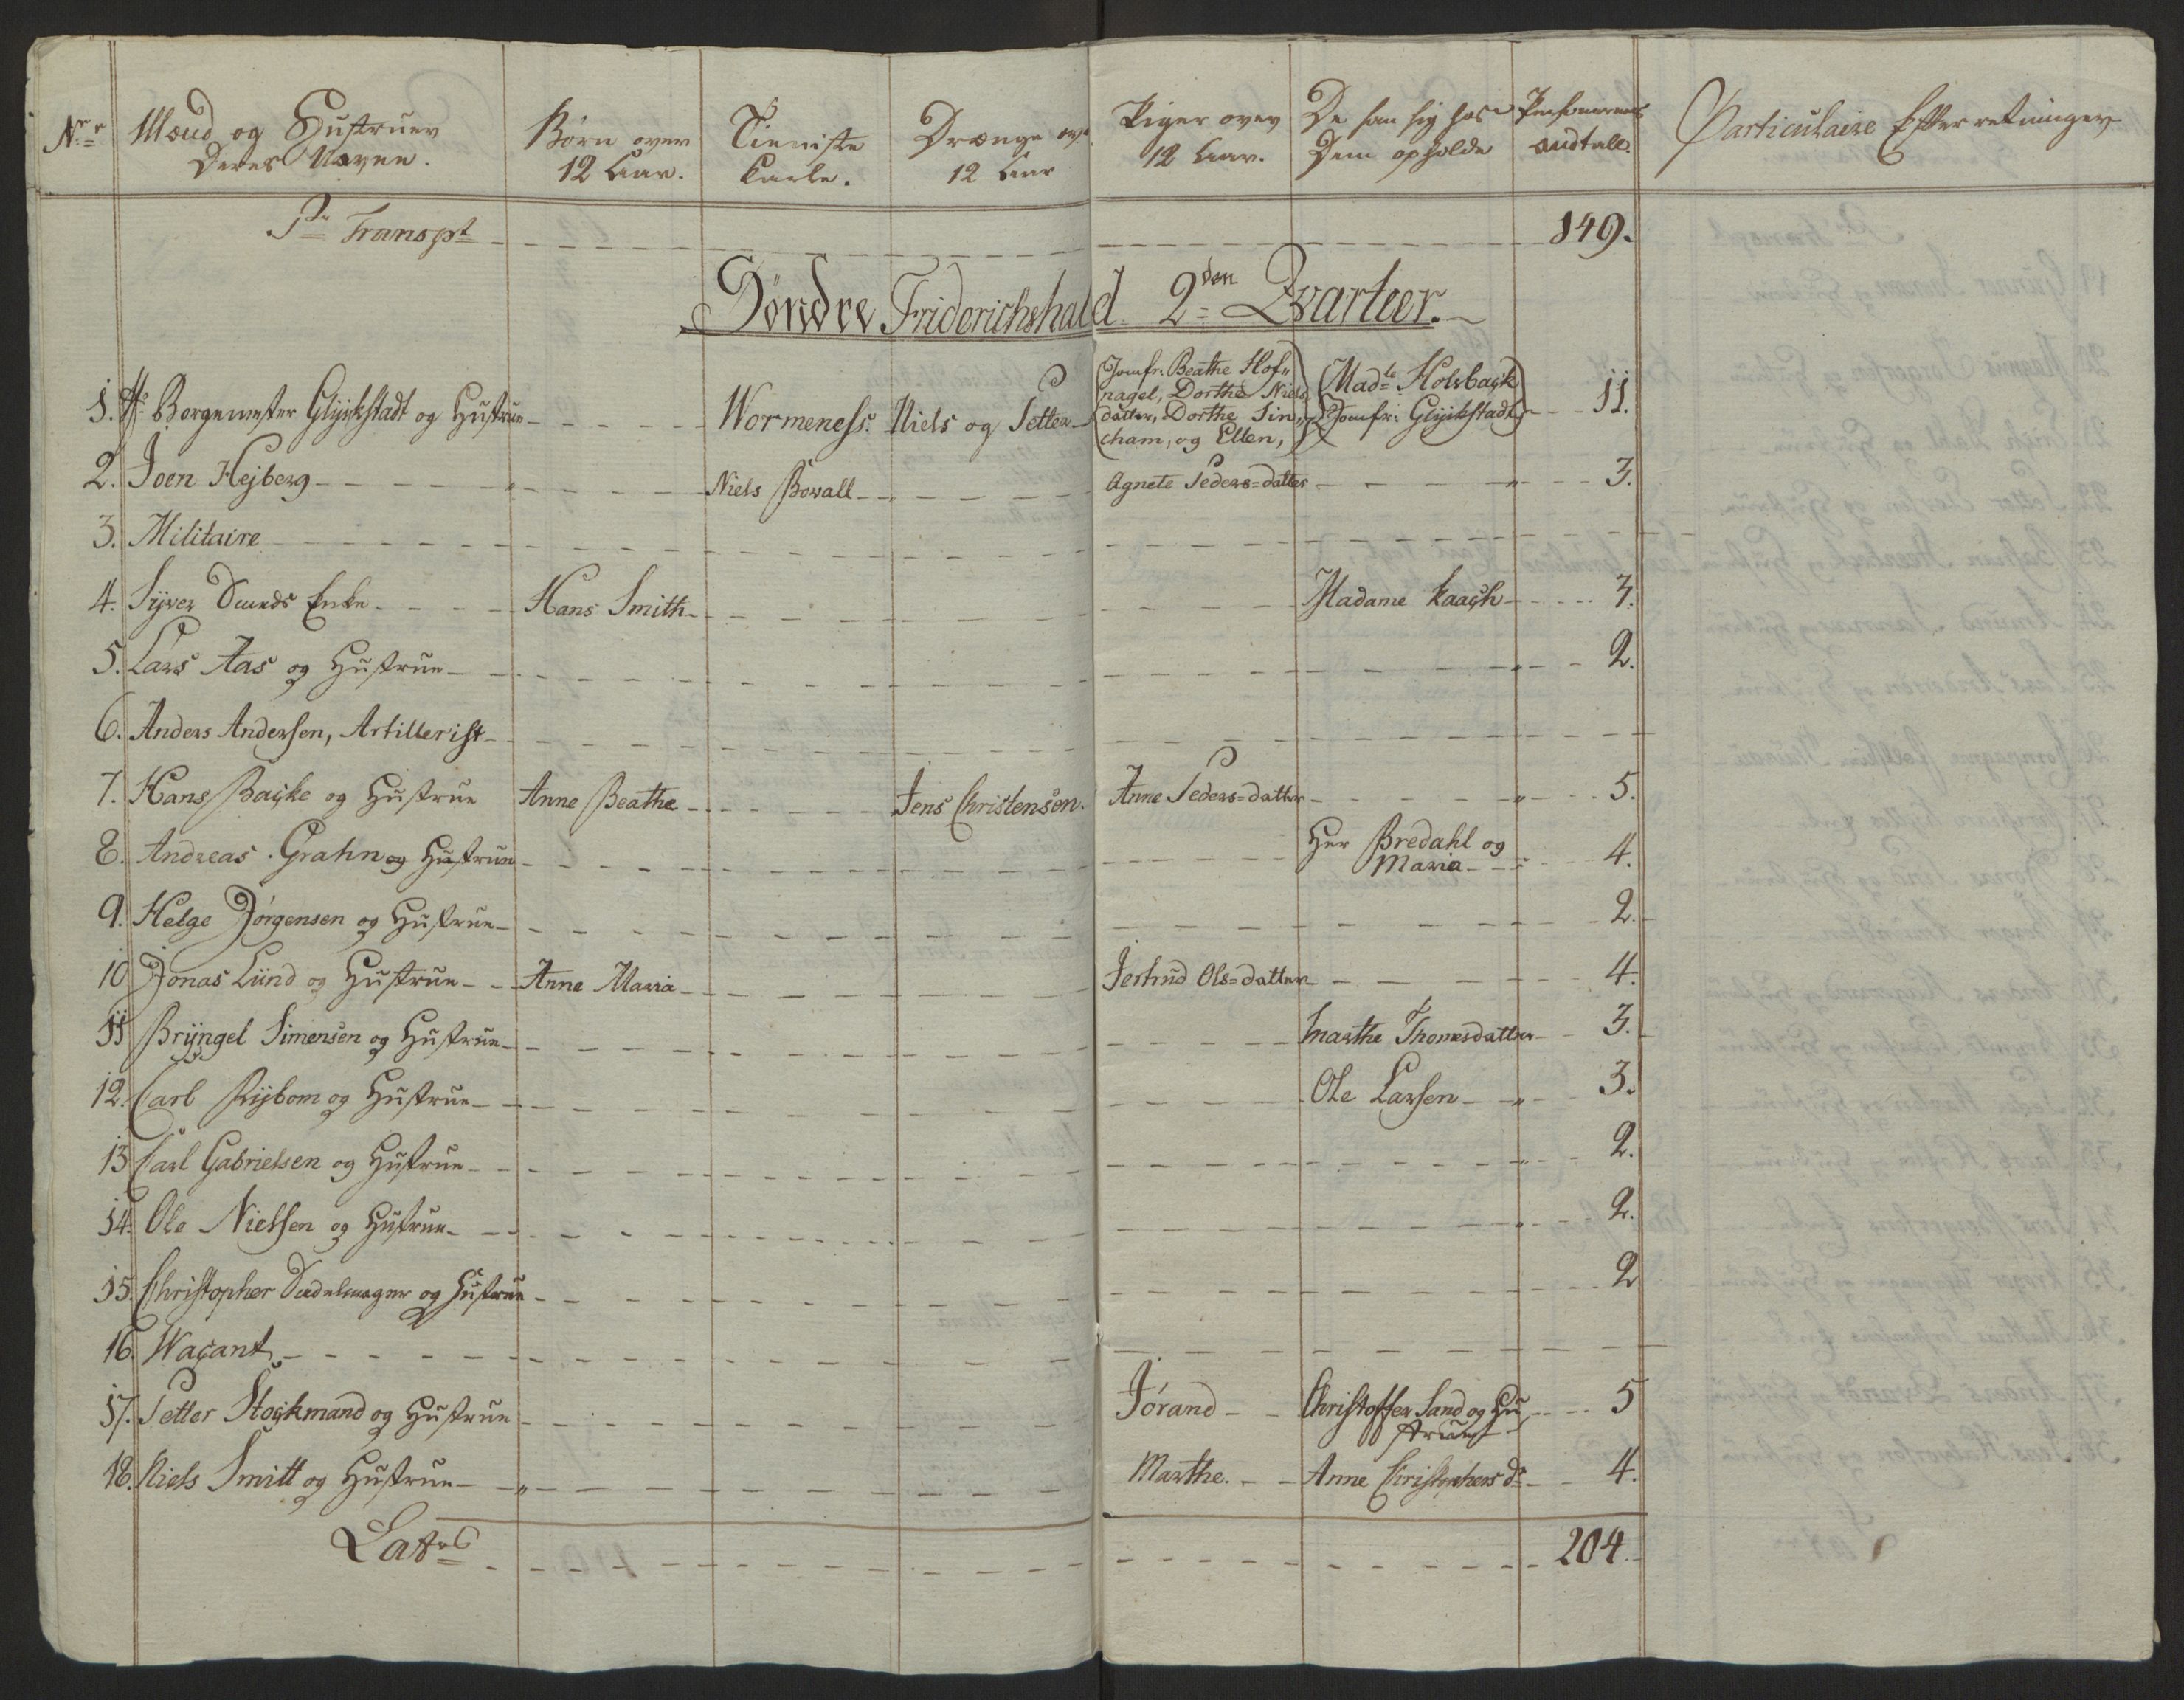 N:r Mænd og Hustruer Deres Navne. Børn over 12 Aar. Tieniste Karle. Drænge ov: 12 Aar Piger over 12 Aar. De som sig hos Dem opholde Persohnernes Andtall. Particulaire Efterretninger
Pr Transpt 149.
Söndre Friderichshald 2den Qvarteer.
1. Hr Borgemester Glÿckstadt og Hustrue Wormeness: Niels og Petter (Jomfr: Beathe Hof= nagel, Dorthe Niels datter, Dorthe Sin= cham, og Ellen,) (Madle Holsback Jomfr: Glÿckstadt) 11.
2. Joen Hejberg Niels Bovall Agnete Peders=datter 3.
3. Militaire
4. Syver Smeds Enke Hans Smith Madame Kaach 3.
5. Lars Aas og Hustrue 2.
6. Anders Andersen, Artillerist
7. Hans Backe og Hustrue Anne Beathe Jens Christensen. Anne Peders=datter 5.
8. Andreas Grahn og Hustrue Her Bredahl og Maria 4.
9. Helge Jörgensen og Hustrue 2.
10 Jonas Lund og Hustrue Anne Maria Jertrud Ols=datter 4.
11 Brÿngel Simensen og Hustrue Marthe Thomesdatter 3.
12. Carl Rÿbom og Hustrue Ole Larsen 3.
13 Carl Gabrielsen og Hustrue 2.
14. Ole Nielsen og Hustrue 2.
15. Christopher Sadelmager og Hustrue 2
16. Wacant
17. Petter Stockmand og Hustrue Jórand Christoffer Sand og Hu strue 5
18. Niels Smitt og Hustrue Marthe. Anne Christophers dr 4.
Latrs 204.